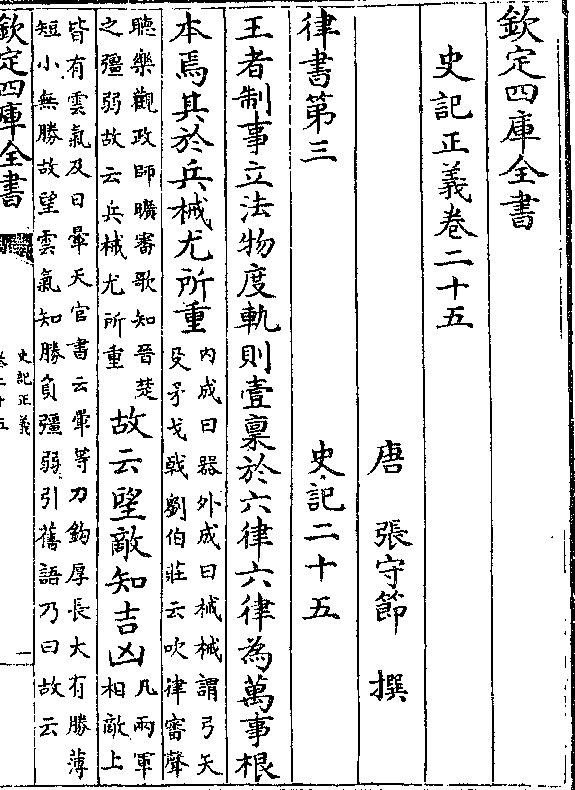 欽定四庫全書
史記正義卷二十五
唐　張守節　撰
律書第三　史記二十五
王者制事立法物度軌則壹稟於六律六律為萬事根
本焉其於兵械尤所重
内成曰器外成曰械械謂弓矢
殳矛戈戟劉伯莊云吹律審聲
聽樂觀政師曠審歌知晉楚
之彊弱故云兵械尤所重
故云望敵知吉凶
凡兩軍
相敵上
皆有雲氣及日暈天官書云暈等力鈞厚長大有勝薄
短小無勝故望雲氣知勝負彊弱引舊語乃曰故云
欽定四庫全書
史記正義
卷二十五
一